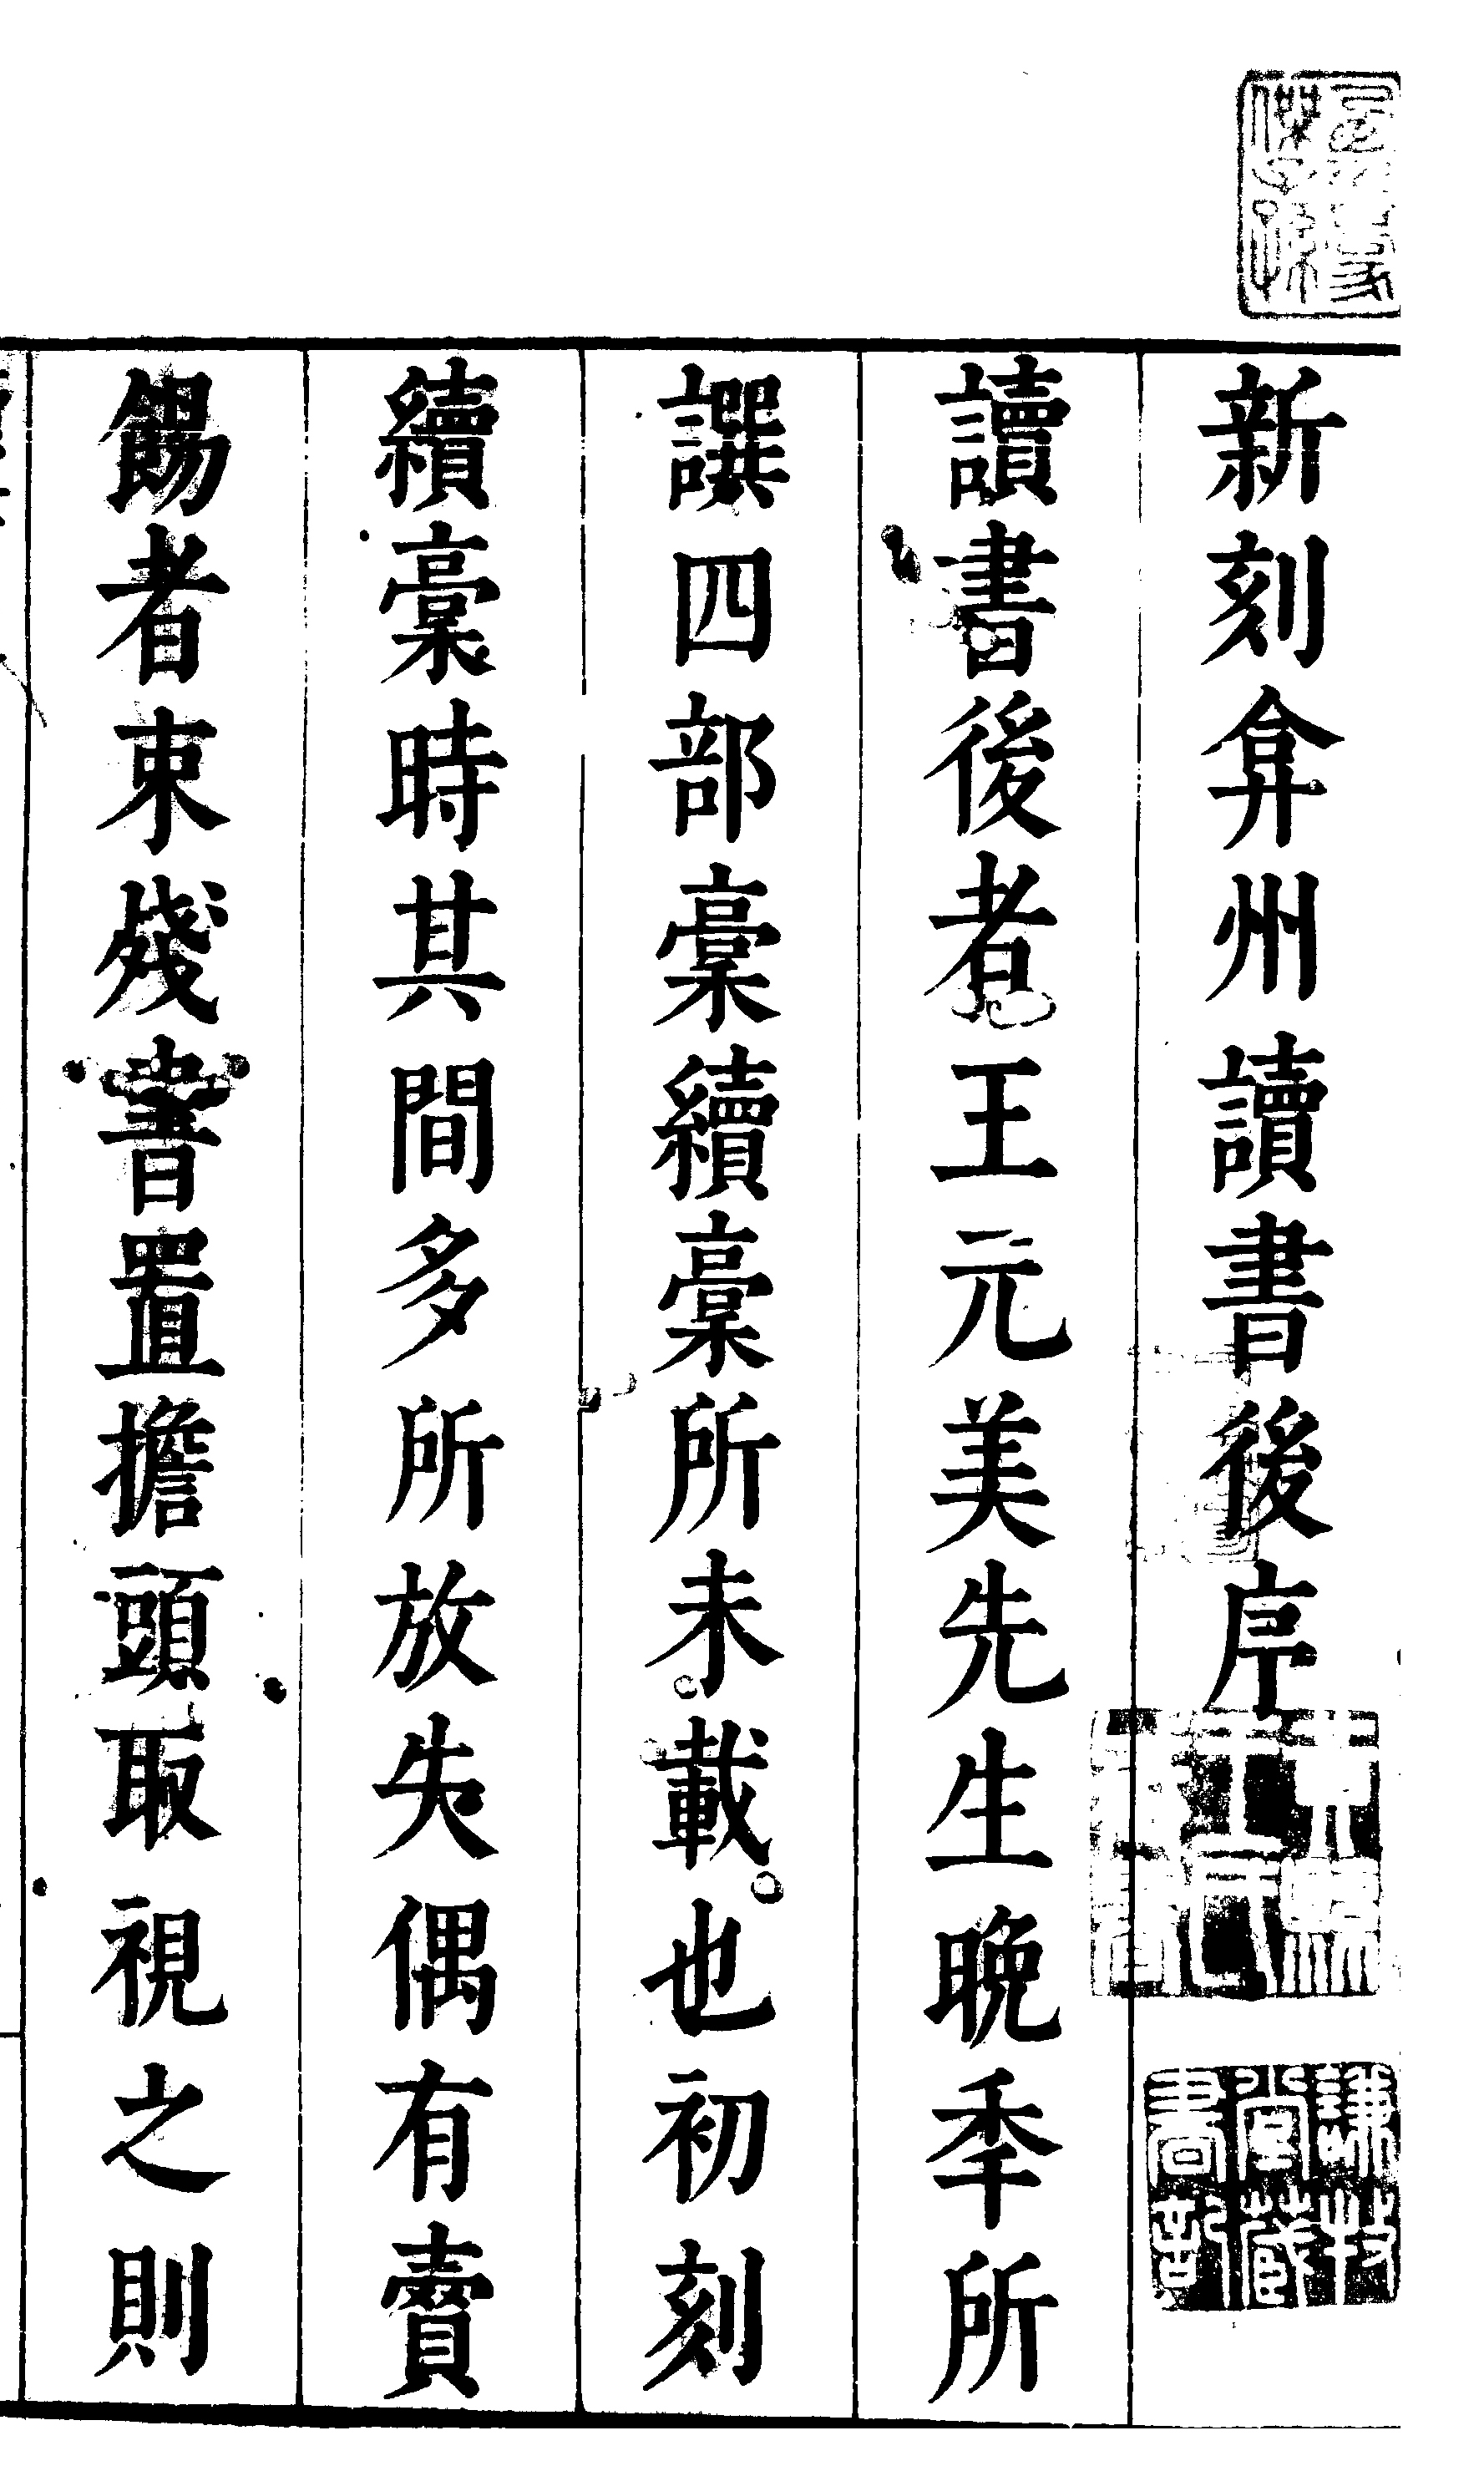 新刻弇州讀書後序
讀書後者王元美先生晚季所
譔四部稾續稾所未載也初刻
續稾時其間多所放失偶有賣
餳者束殘書置擔頭取視之則